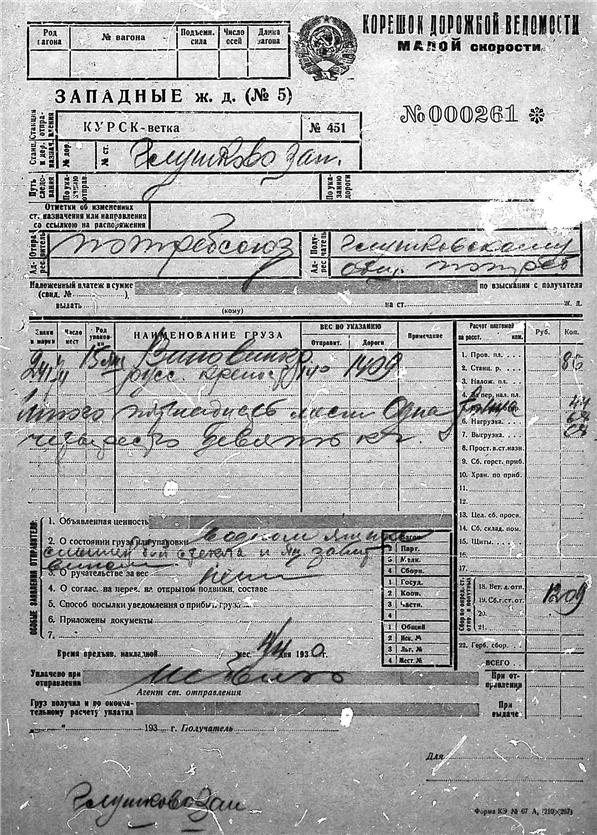 КОРЕШОК ДОРОЖНОЙ ВЕДОМОСТИ
МАЛОЙ скорости
Род вагона
№ вагона
Подъемн. сила
Число осей
Длина вагона
ЗАПАДНЫЕ ж. д. (№ 5)
№000261
КУРСК-ветка
№ 451
№ дор.
№ ст.
Глушково Зап.
Путь следования
По указанию отправ.
По указанию дороги
Отметки об изменениях
ст. назначения или направления
со ссылкою на распоряжения
Адр. Отправитель
Потребсоюз
Адр. Получатель
Глушковскому
общ. потреб
Наложенный платеж в сумме
по взыскании с получателя
(свид. №
выдать
(кому)
на ст.
ж. д.
Знаки и марки
Число мест
Род упаковки
НАИМЕНОВАНИЕ ГРУЗА
ВЕС ПО УКАЗАНИЮ
Отправит.
Дороги
Примечание
Расчет платежей
за расст. км.
Руб.
Коп.
15
Вино
1409
Итого пятнадцать мест Одна
четыреста девять кг.
1. Пров. пл.
2. Станц. р.
3. Налож. пл.
4. За пер. нал. пл.
6. Нагрузка.
7. Выгрузка.
8. Прост. в ст. назн.
9. Сб. горст. приб.
10. Хран. по приб.
13. Цел. сб. просв.
14. Сб. склад. пом.
15. Щиты.
16.
17.
18. Вет. д. отп.
19. Сб. г. ст. от.
20.
21.
22. Герб. сбор.
ВСЕГО
12 09
ОСОБЫЕ ЗАЯВЛЕНИЯ ОТПРАВИТЕЛЯ:
1. Объявленная ценность
2. О состоянии груза или упаковки
В одном ящике
слышен бой стекла и
3. О ручательстве за вес
нет
4. О соглас. на перев. на открытом подвижн. составе
5. Способ посылки уведомления о прибыт. груза
6. Приложены документы
7.
1 Вагон.
2 Парт.
3 Мелк.
4 Сборн.
1 Госуд.
2 Кооп.
3 Частн.
4
1 Общий
2 Иск. №
3 Льг. №
4 Мест. №
Время предъяв. накладной
мес.
дня 193 0 г.
Уплачено при отправлении
При отправлении
Агент ст. отправления
Груз получил и по окончательному расчету уплатил
При выдаче
„ “ 193 г. Получатель
Для
Глушково Зап
Форма КЭ № 67 А, (210)×(297)